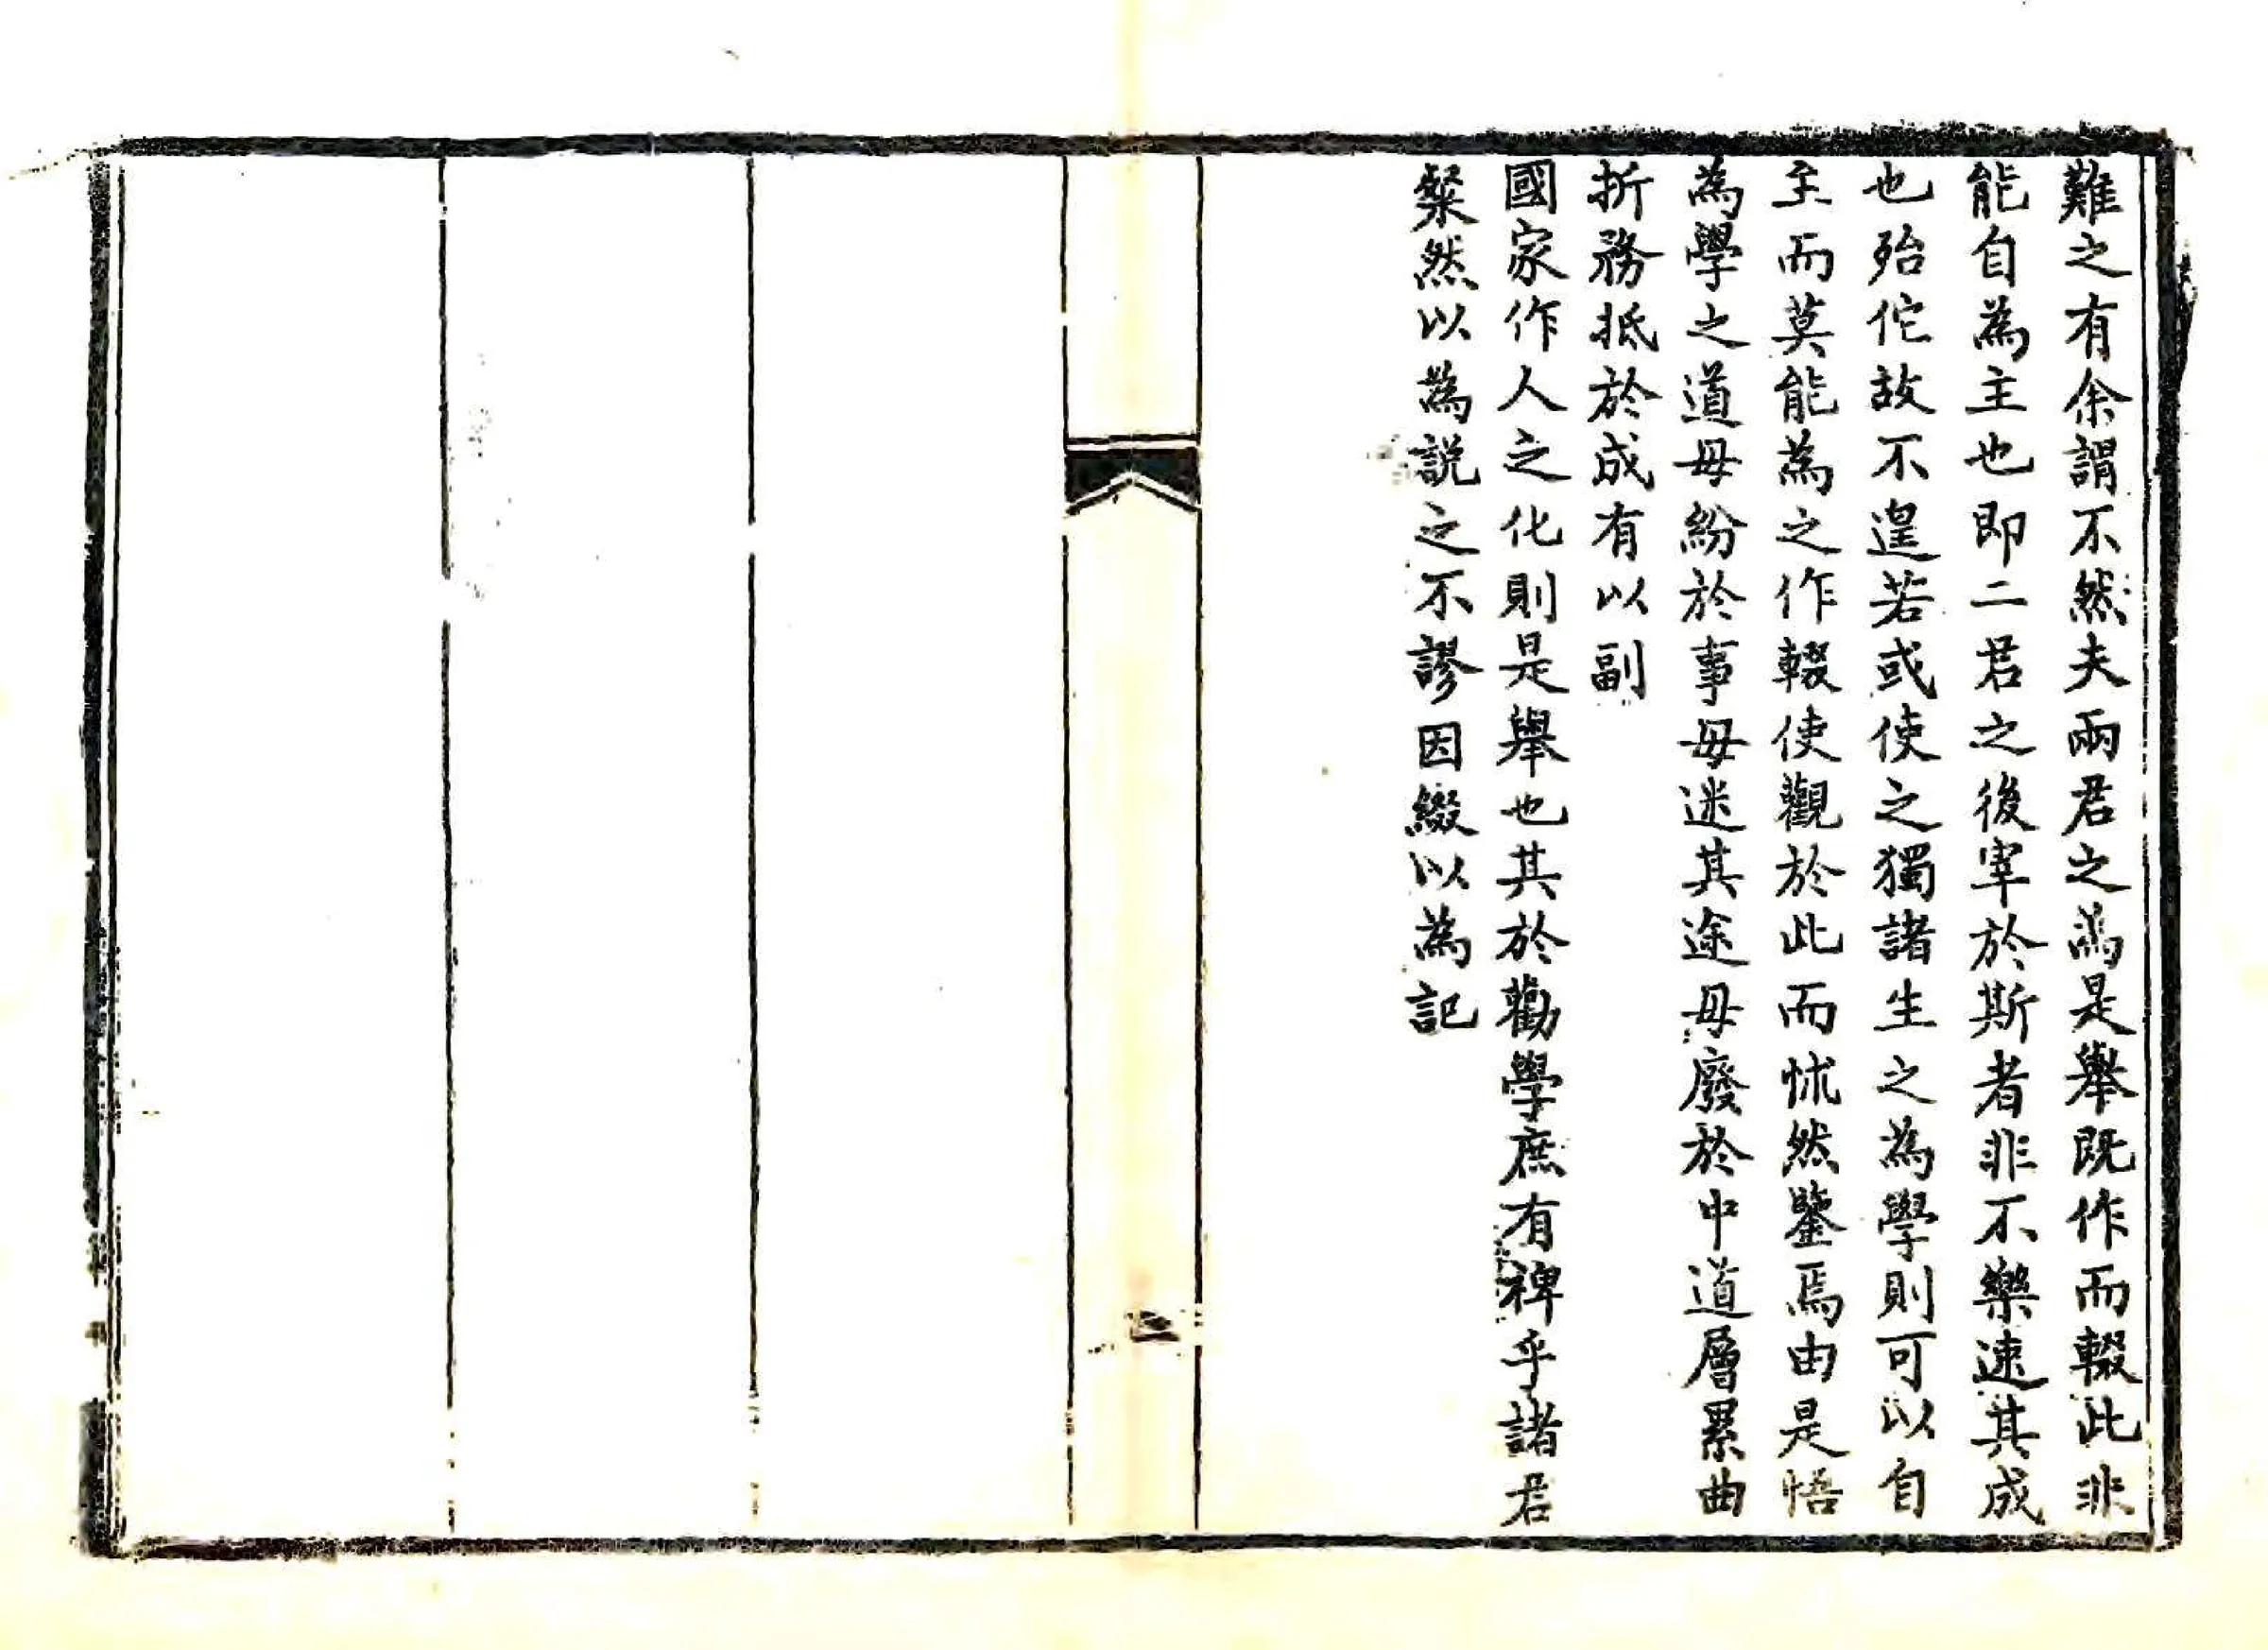 難之有余謂不然夫兩君之為是舉既作而輟此非
能自為主也即二君之後宰於斯者非不樂速其成
也殆佗故不遑若或使之獨諸生之為學則可以自
主而莫能為之作輟使觀於此而怵然鑒焉由是悟
為學之道毋紛於事毋迷其途毋廢於中道層累曲
折務抵於成有以副
國家作人之化則是舉也其於勸學庶有裨乎諸君
粲然以為説之不謬因綴以為記